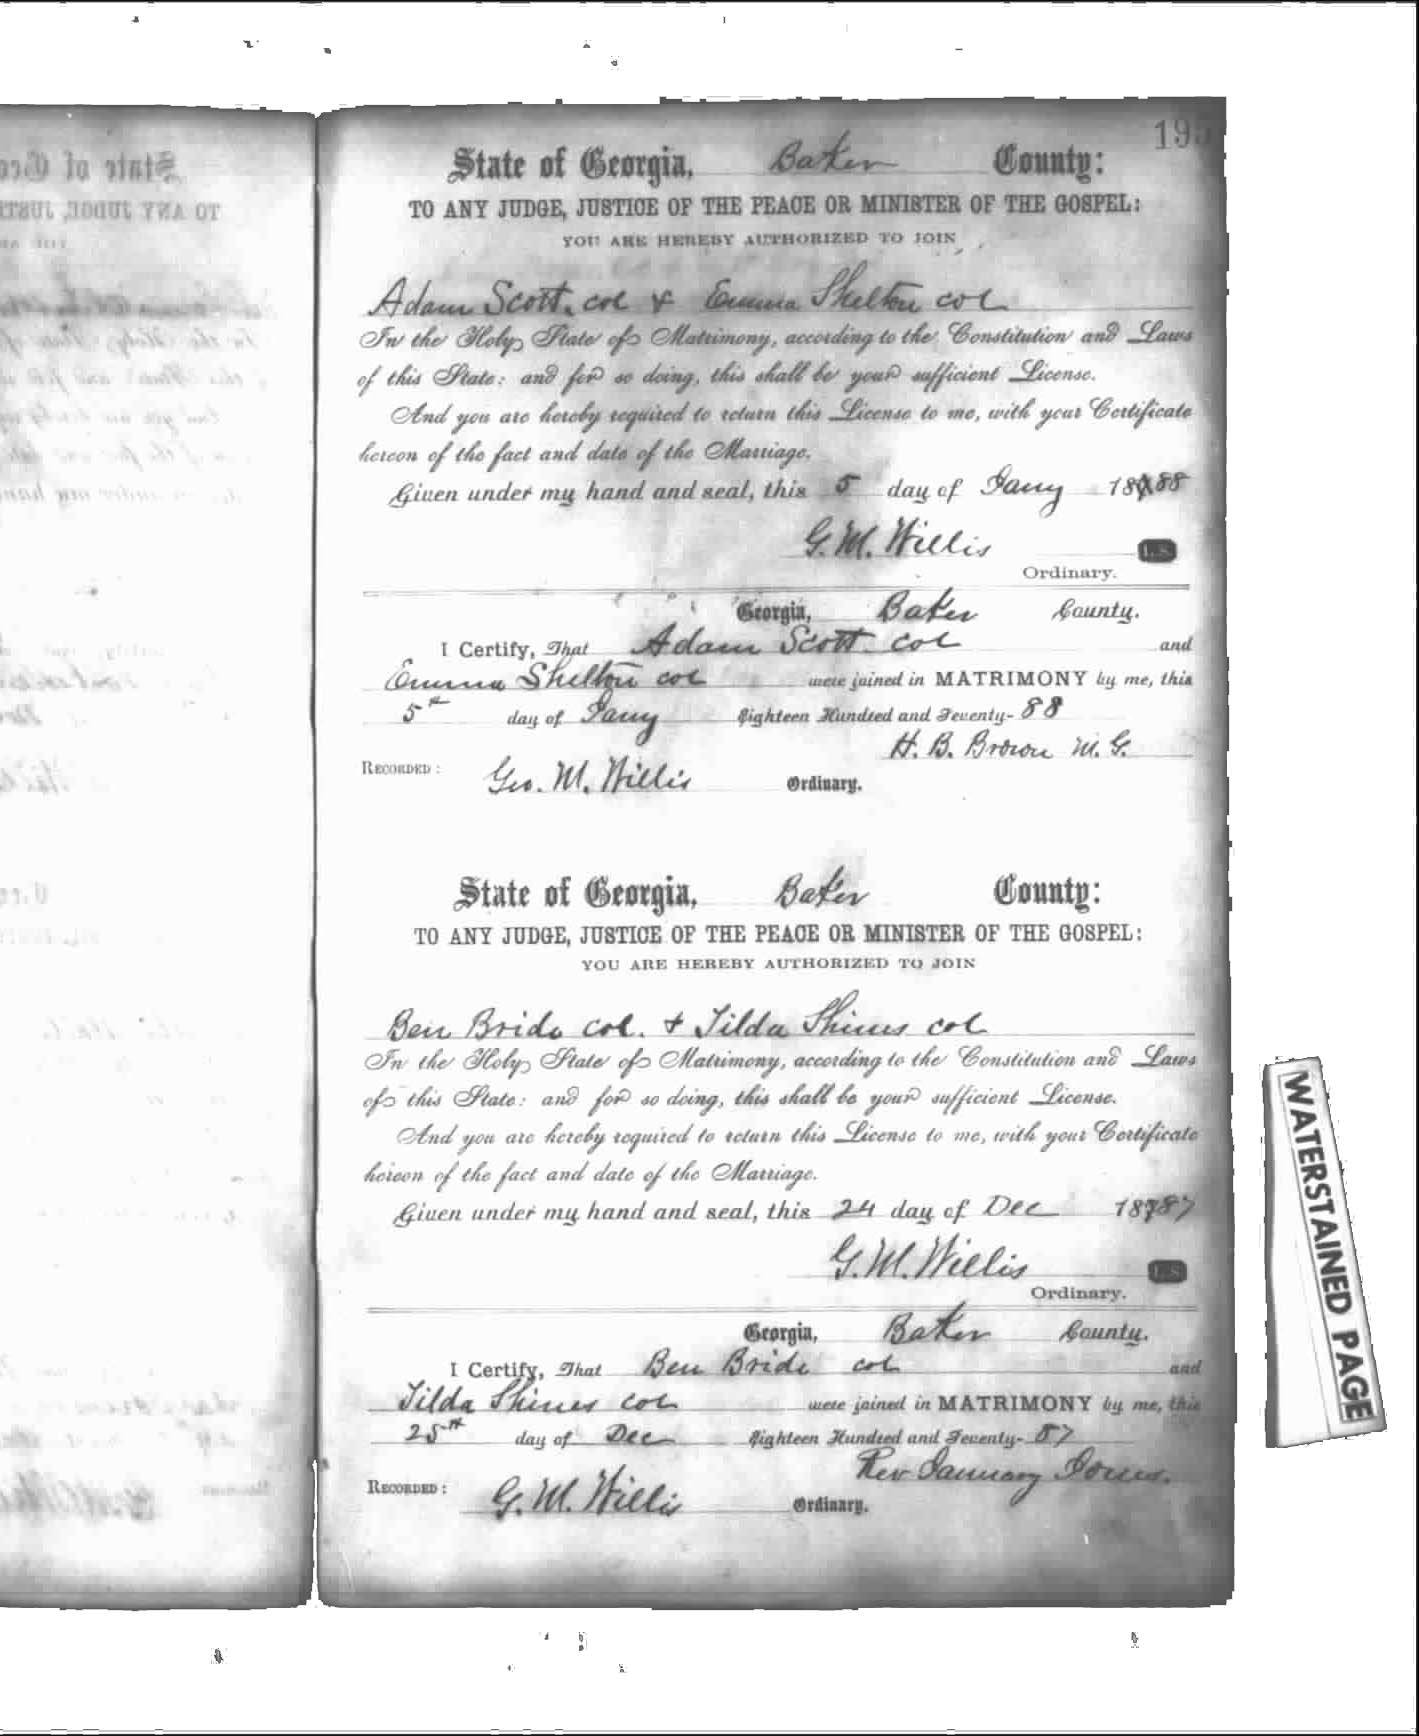 195
State of Georgia, Baker County:
TO ANY JUDGE, JUSTICE OF THE PEACE OR MINISTER OF THE GOSPEL:
YOU ARE HEREBY AUTHORIZED TO JOIN
Adam Scott. col & Emma Shelton col
In the Holy State of Matrimony, according to the Constitution and Laws
of this State: and for so doing, this shall be your sufficient License.
And you are hereby required to return this License to me, with your Certificate
hereon of the fact and date of the Marriage.
Given under my hand and seal, this 5 day of Jany 1888
G. M. Willis L.S.
Ordinary.
Georgia, Baker County.
I Certify, That Adam Scott. col and
Emma Shelton col were joined in MATRIMONY by me, this
5th day of Jany Eighteen Hundred and Seventy- 88
H. B. Brown M. G.
RECORDED: Geo. M. Willis Ordinary.
State of Georgia, Baker County:
TO ANY JUDGE, JUSTICE OF THE PEACE OR MINISTER OF THE GOSPEL:
YOU ARE HEREBY AUTHORIZED TO JOIN
Ben Bride col. & Tilda Shines col
In the Holy State of Matrimony, according to the Constitution and Laws
of this State: and for so doing, this shall be your sufficient License.
And you are hereby required to return this License to me, with your Certificate
hereon of the fact and date of the Marriage.
Given under my hand and seal, this 24 day of Dec 1887
G. M. Willis L.S.
Ordinary.
Georgia, Baker County.
I Certify, That Ben Bride col and
Tilda Shines col were joined in MATRIMONY by me, this
25th day of Dec Eighteen Hundred and Seventy- 87
Rev January Jones.
RECORDED: G. M. Willis Ordinary.
WATERSTAINED PAGE